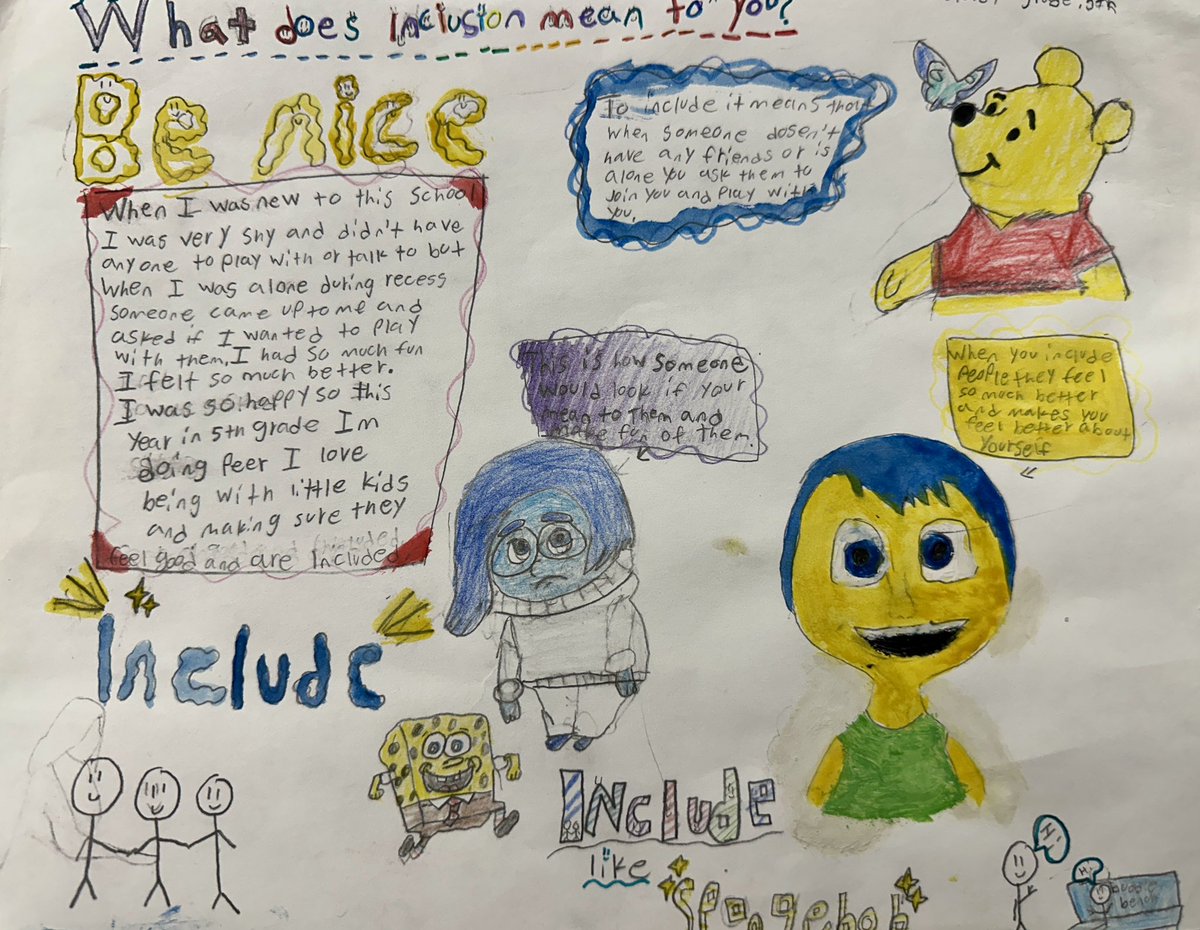 What does inclusion mean to you?
Be nice
When I was new to this school
I was very shy and didn't have
anyone to play with or talk to but
when I was alone during recess
someone came up to me and
asked if I wanted to play
with them, I had so much fun
I felt so much better.
I was so happy so this
year in 5th grade Im
doing Peer I love
being with little kids
and making sure they
feel good and are Included
To include it means that
when someone dosen't
have any friends or is
alone you ask them to
Join you and play with
you.
This is how someone
would look if your
mean to them and
make fun of them.
When you include
People they feel
so much better
and makes you
feel better about
yourself
Include
Include
like
Spongebob
Hi
Hi
buddie
bench